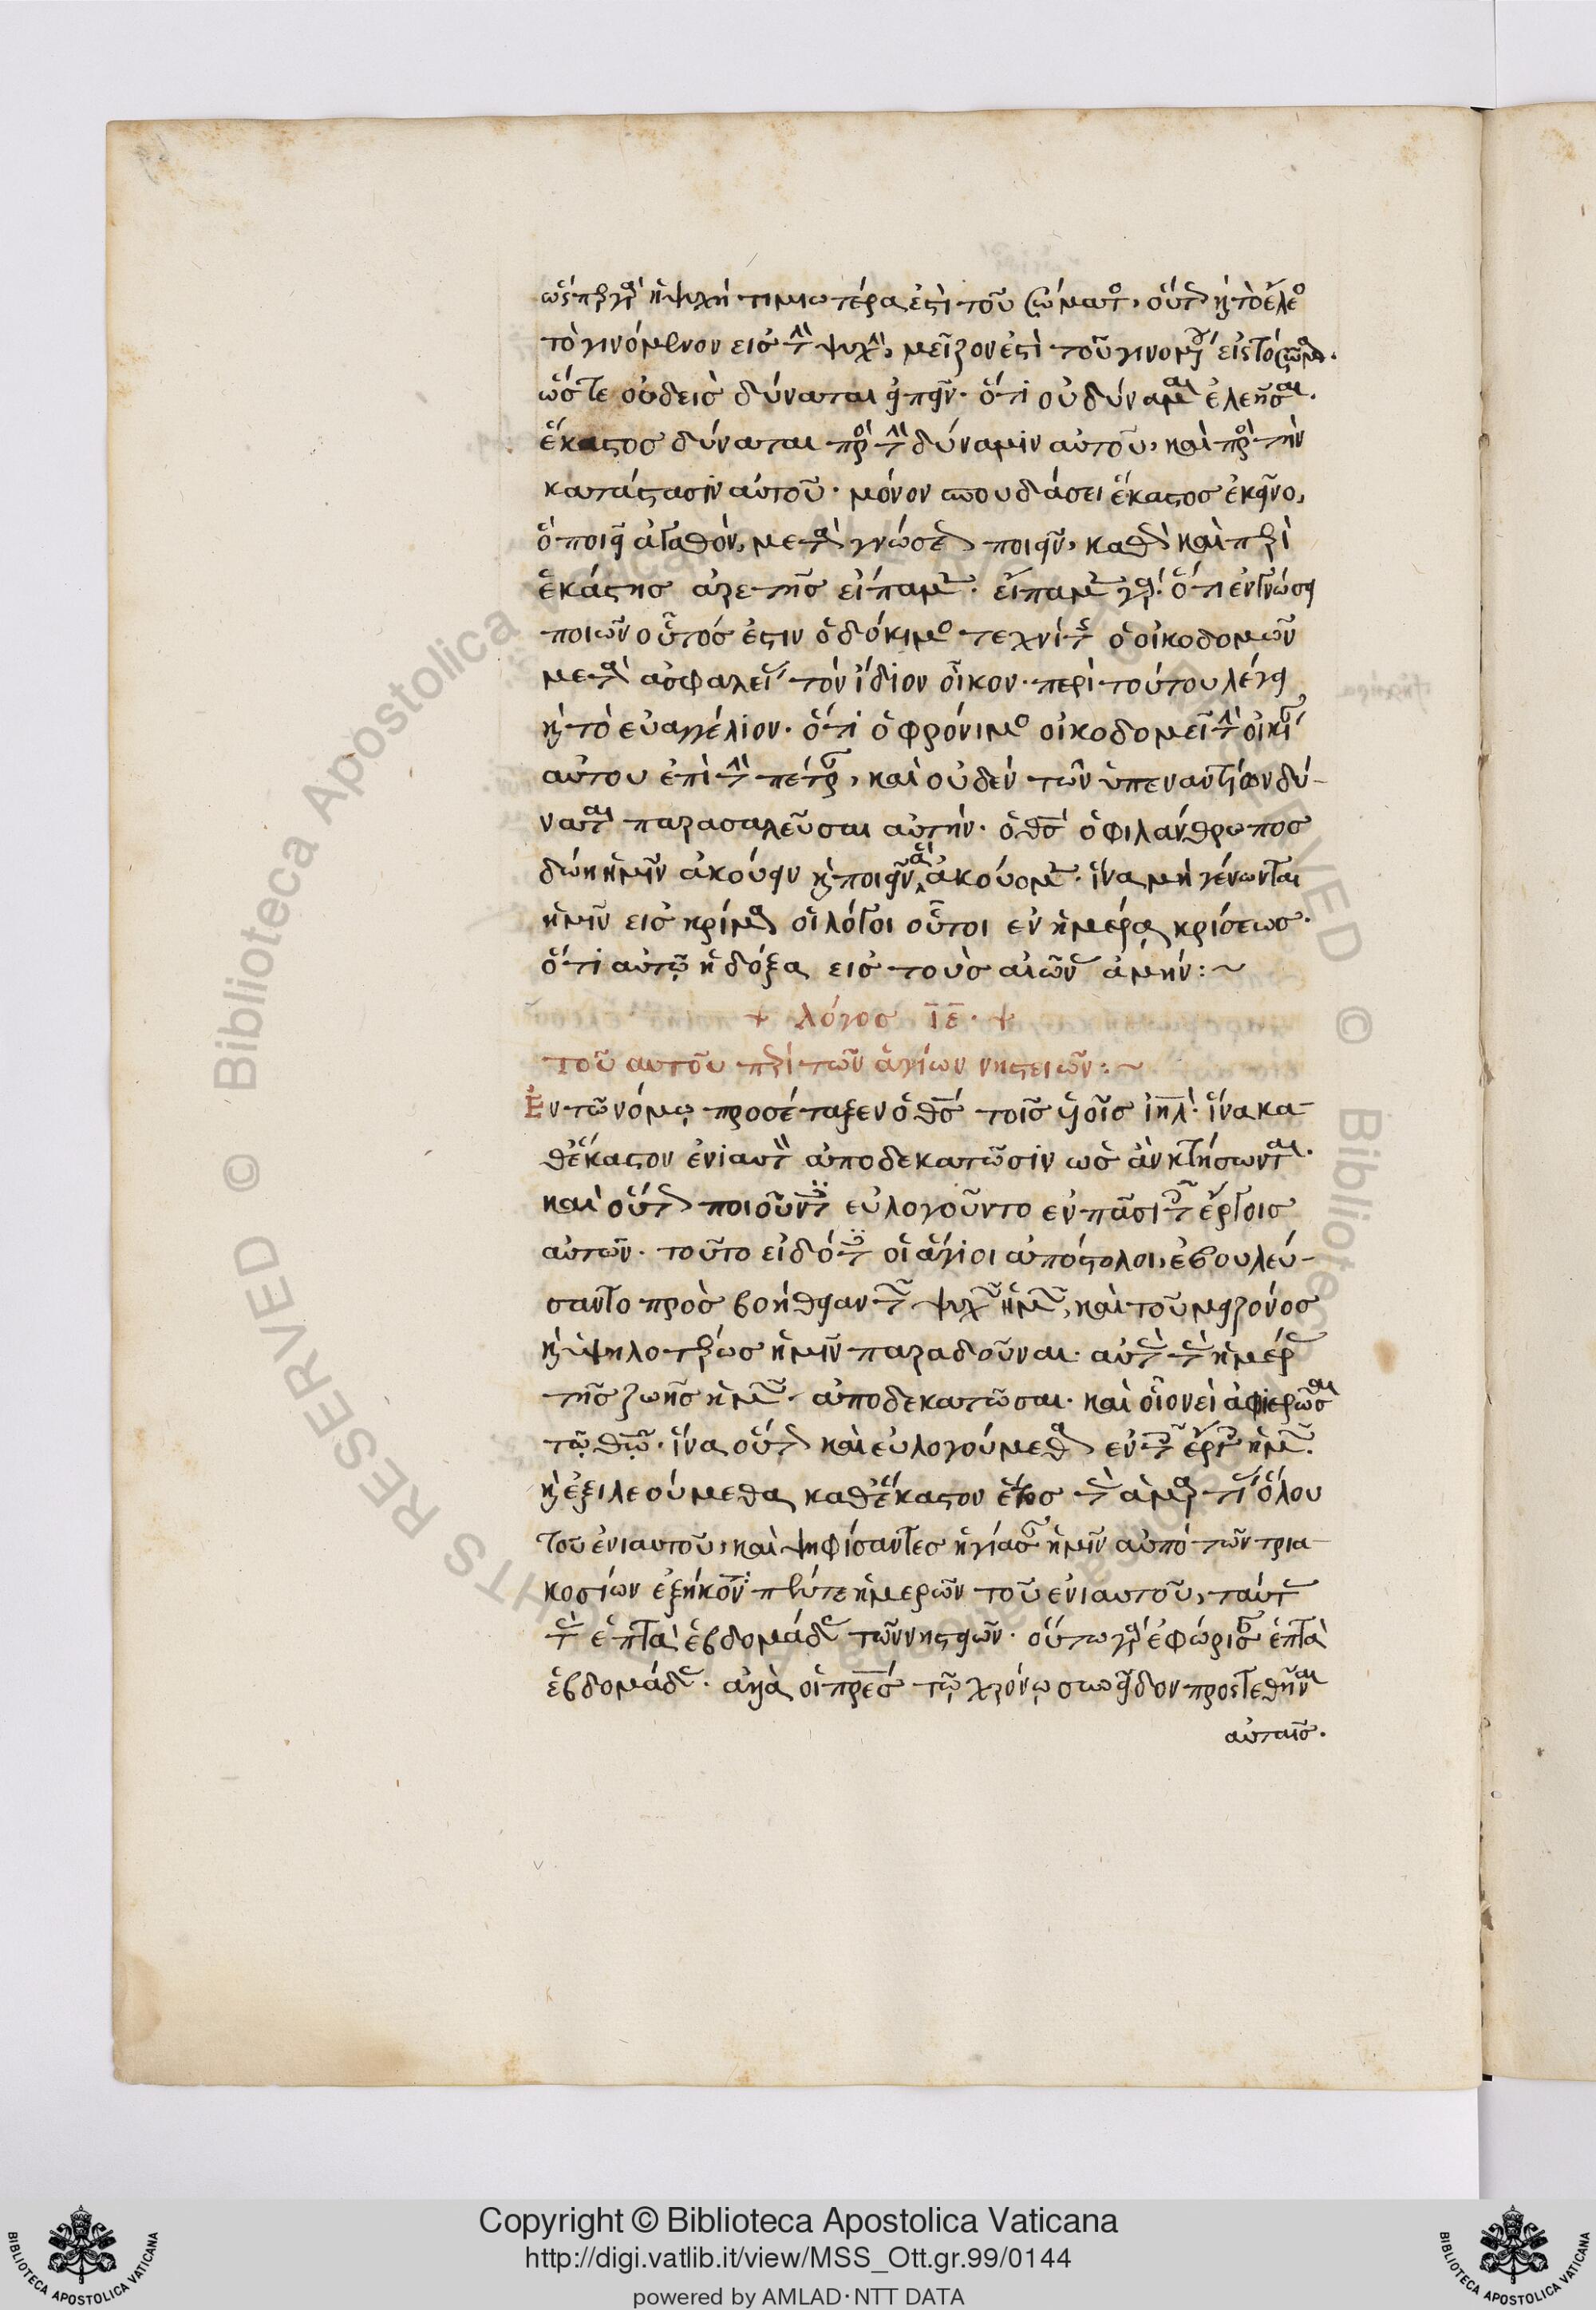 ὥσπερ γὰρ ἡ ψυχὴ τιμιωτέρα ἐστὶ τοῦ σώματος, οὕτως καὶ τὸ ἔλεος
τὸ γινόμενον εἰς τὴν ψυχὴν, μεῖζον ἐστὶ τοῦ γινομένου εἰς τὸ σῶμα.
ὥστε οὐδεὶς δύναται εἰπεῖν· ὅτι οὐ δύναμαι ἐλεῆσαι.
ἕκαστος δύναται πρὸς τὴν δύναμιν αὐτοῦ, καὶ πρὸς τὴν
κατάστασιν αὐτοῦ· μόνον σπουδάσει ἕκαστος ἐκεῖνο,
ὃ ποιεῖ ἀγαθὸν, μετὰ γνώσεως ποιεῖν, καθὼς καὶ περὶ
ἑκάστης ἀρετῆς εἴπαμεν. εἴπαμεν γὰρ· ὅτι ἐν γνώσει
ποιῶν οὗτός ἐστιν ὁ δόκιμος τεχνίτης ὁ οἰκοδομῶν
μετὰ ἀσφαλείας τὸν ἴδιον οἶκον· περὶ τούτου λέγει
καὶ τὸ εὐαγγέλιον· ὅτι ὁ φρόνιμος οἰκοδομεῖ τὴν οἰκίαν
αὐτου ἐπὶ τὴν πέτραν, καὶ οὐδὲν τῶν ὑπεναντίων δύ-
ναται παρασαλεῦσαι αὐτήν· ὁ θσ ὁ φιλάνθρωπος
δώη ἡμῖν ἀκούειν καὶ ποιεῖν ἃ ἀκούομεν· ἵνα μὴ γένωνται
ἡμῖν εἰς κρίμα οἱ λόγοι οὗτοι ἐν ἡμέρα κρίσεως·
ὅτι αὐτῷ ἡ δόξα εἰς τοὺς αἰῶνας ἀμήν:~
+ λόγος ΙΕ· +
τοῦ αυτοῦ περὶ τῶν ἁγίων νηστειῶν:~
Ἐν τῶ νόμῳ προσέταξεν ὁ θσ τοῖς υἱοῖς ιηλ· ἵνα κα-
θέκαστον ἐνιαυτὸν ἀποδεκατῶσιν ὡς ἂν κτήσωνται.
καὶ οὕτως ποιοῦντες εὐλογοῦντο ἐν πᾶσι τοῖς ἔργοις
αὐτῶν· τοῦτο εἰδότες οἱ ἅγιοι ἀπόστολοι, ἐβουλεύ-
σαντο πρὸς βοήθειαν τῶν ψυχῶν ἡμῶν, καὶ τοῦ μειζόνος
καὶ ὑψηλοτέρως ἡμῖν παραδοῦναι· αὐτὰς τὰς ἡμέρας
τῆς ζωῆς ἡμῶν· ἀποδεκατῶσαι· καὶ οἱονεὶ ἀφιερῶσαι
τῷ θῷ· ἵνα οὕτως καὶ εὐλογούμεθα ἐν τοῖς ἔργοις ἡμῶν.
καὶ ἐξιλεούμεθα καθέκαστον ἔτος τὰς ἁμαρτίας ὅλου
τοῦ ἐνιαυτοῦ, καὶ ψηφίσαντες ἡγίασαν ἡμῖν ἀπὸ τῶν τρια-
κοσίων ἑξήκοντα πέντε ἡμερῶν τοῦ ἐνιαυτοῦ, ταύτας
τὰς ἑπτὰ ἑβδομάδας τῶν νηστειῶν· οὕτω γὰρ ἐφώρισαν ἑπτὰ
ἑβδομάδας· ἀλλὰ οἱ πρες τῷ χρόνῳ συνεῖδον προστεθῆναι
αὐταῖς.
Copyright © Biblioteca Apostolica Vaticana
http://digi.vatlib.it/view/MSS_Ott.gr.99/0144
powered by AMLAD·NTT DATA